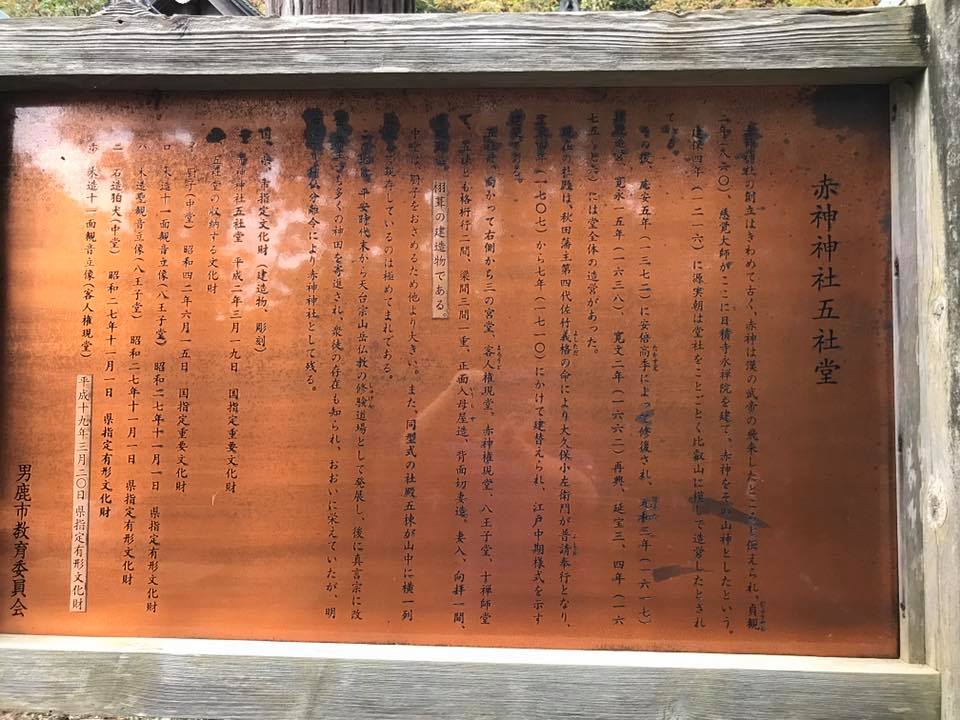 赤神神社五社堂
の創立はきわめて古く、赤神は漢の武帝の飛来したところと伝えられ、貞観
二年(八六〇)、慈覚大師がここに日積寺永禅院を建て、赤神をその山神としたという。
建保四年(一二一六)に源実朝は堂社をことごとく比叡山に模して造営したとされ
て
の後、応安五年(一三七二)に安倍高季によって修復され、元和三年(一六一七)
寛永一五年(一六三八)、寛文二年(一六六二)再興、延宝三、四年(一六
七五、七六)には堂全体の造営があった。
現在の社殿は、秋田藩主第四代佐竹義格の命により大久保小左衛門が普請奉行となり、
年(一七〇七)から七年(一七一〇)にかけて建替えられ、江戸中期様式を示す
である。
向かって右側から三の宮堂、客人権現堂、赤神権現堂、八王子堂、十禅師堂
で、五社とも桁行二間、梁間三間一重、正面入母屋造、背面切妻造。妻入、向拝一間、
栩葺の建造物である。
中央堂は、厨子をおさめるため他より大きい。また、同型式の社殿五棟が山中に横一列
に現存しているのは極めてまれである。
平安時代末から天台宗山岳仏教の修験道場として発展し、後に真言宗に改
多くの神田を寄進され、衆徒の存在も知られ、おおいに栄えていたが、明
神仏分離令により赤神神社として残る。
国、県、市指定文化財(建造物、彫刻)
赤神神社五社堂 平成二年三月一九日 国指定重要文化財
五社堂の収納する文化財
厨子(中堂) 昭和四二年六月一五日 国指定重要文化財
ロ 木造十一面観音立像(八王子堂) 昭和二七年十一月一日 県指定有形文化財
ハ 木造聖観音立像(八王子堂) 昭和二七年十一月一日 県指定有形文化財
ニ 石造狛犬(中堂) 昭和二七年十一月一日 県指定有形文化財
ホ 木造十一面観音立像(客人権現堂) 平成十九年三月二〇日 県指定有形文化財
男鹿市教育委員会